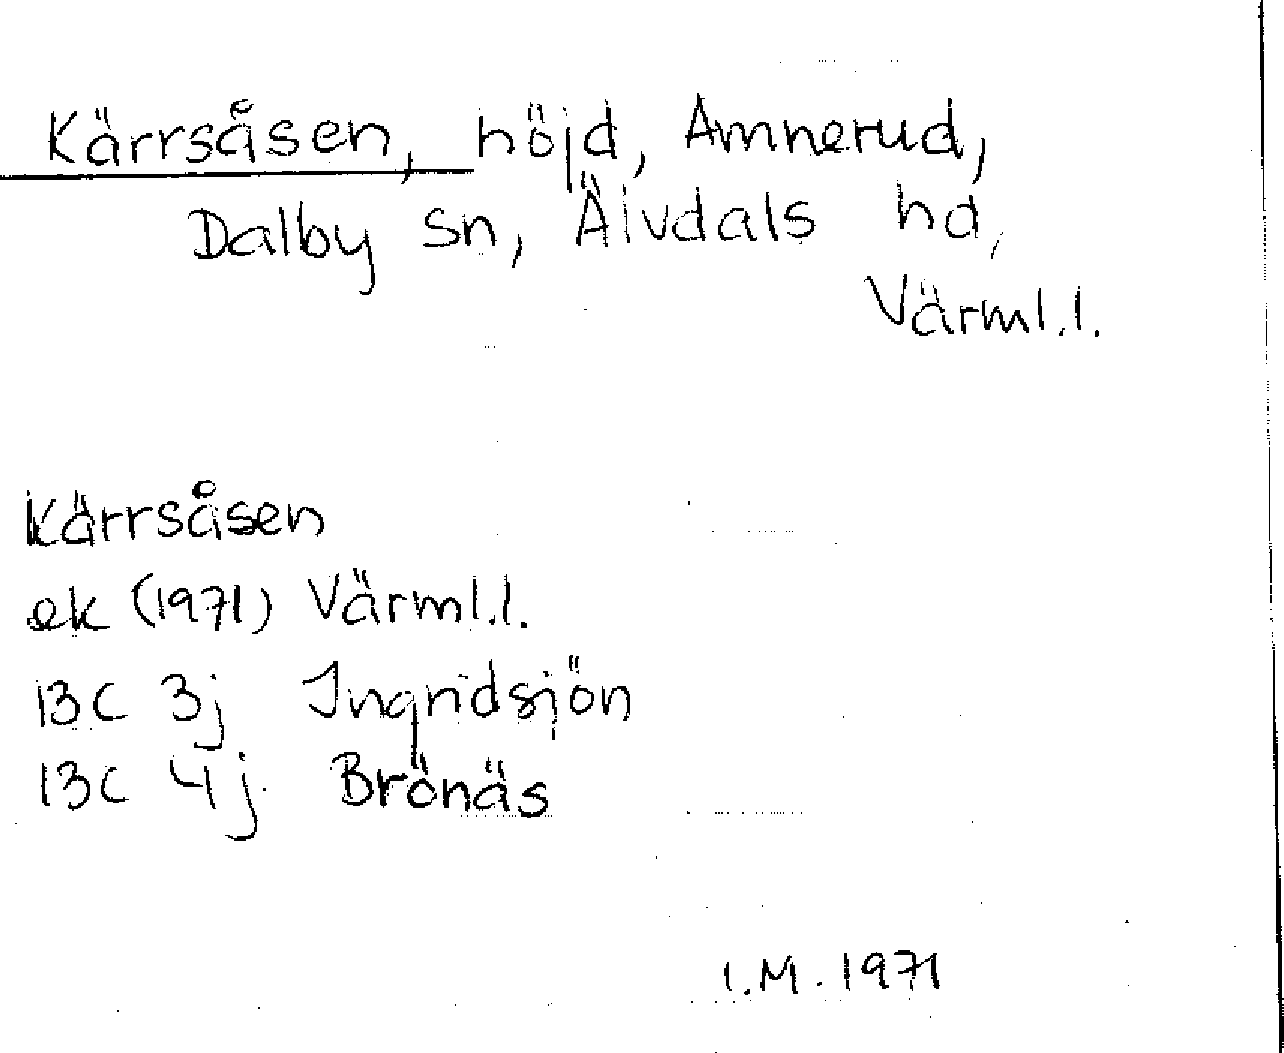 Kärrsåsen, höjd, Amnerud,
Dalby sn, Älvdals hd,
Värml.l.
Kärrsåsen
ek (1971) Värml.l.
13C 3j Ingridsjön
13C 4j Brönäs
I.M. 1971